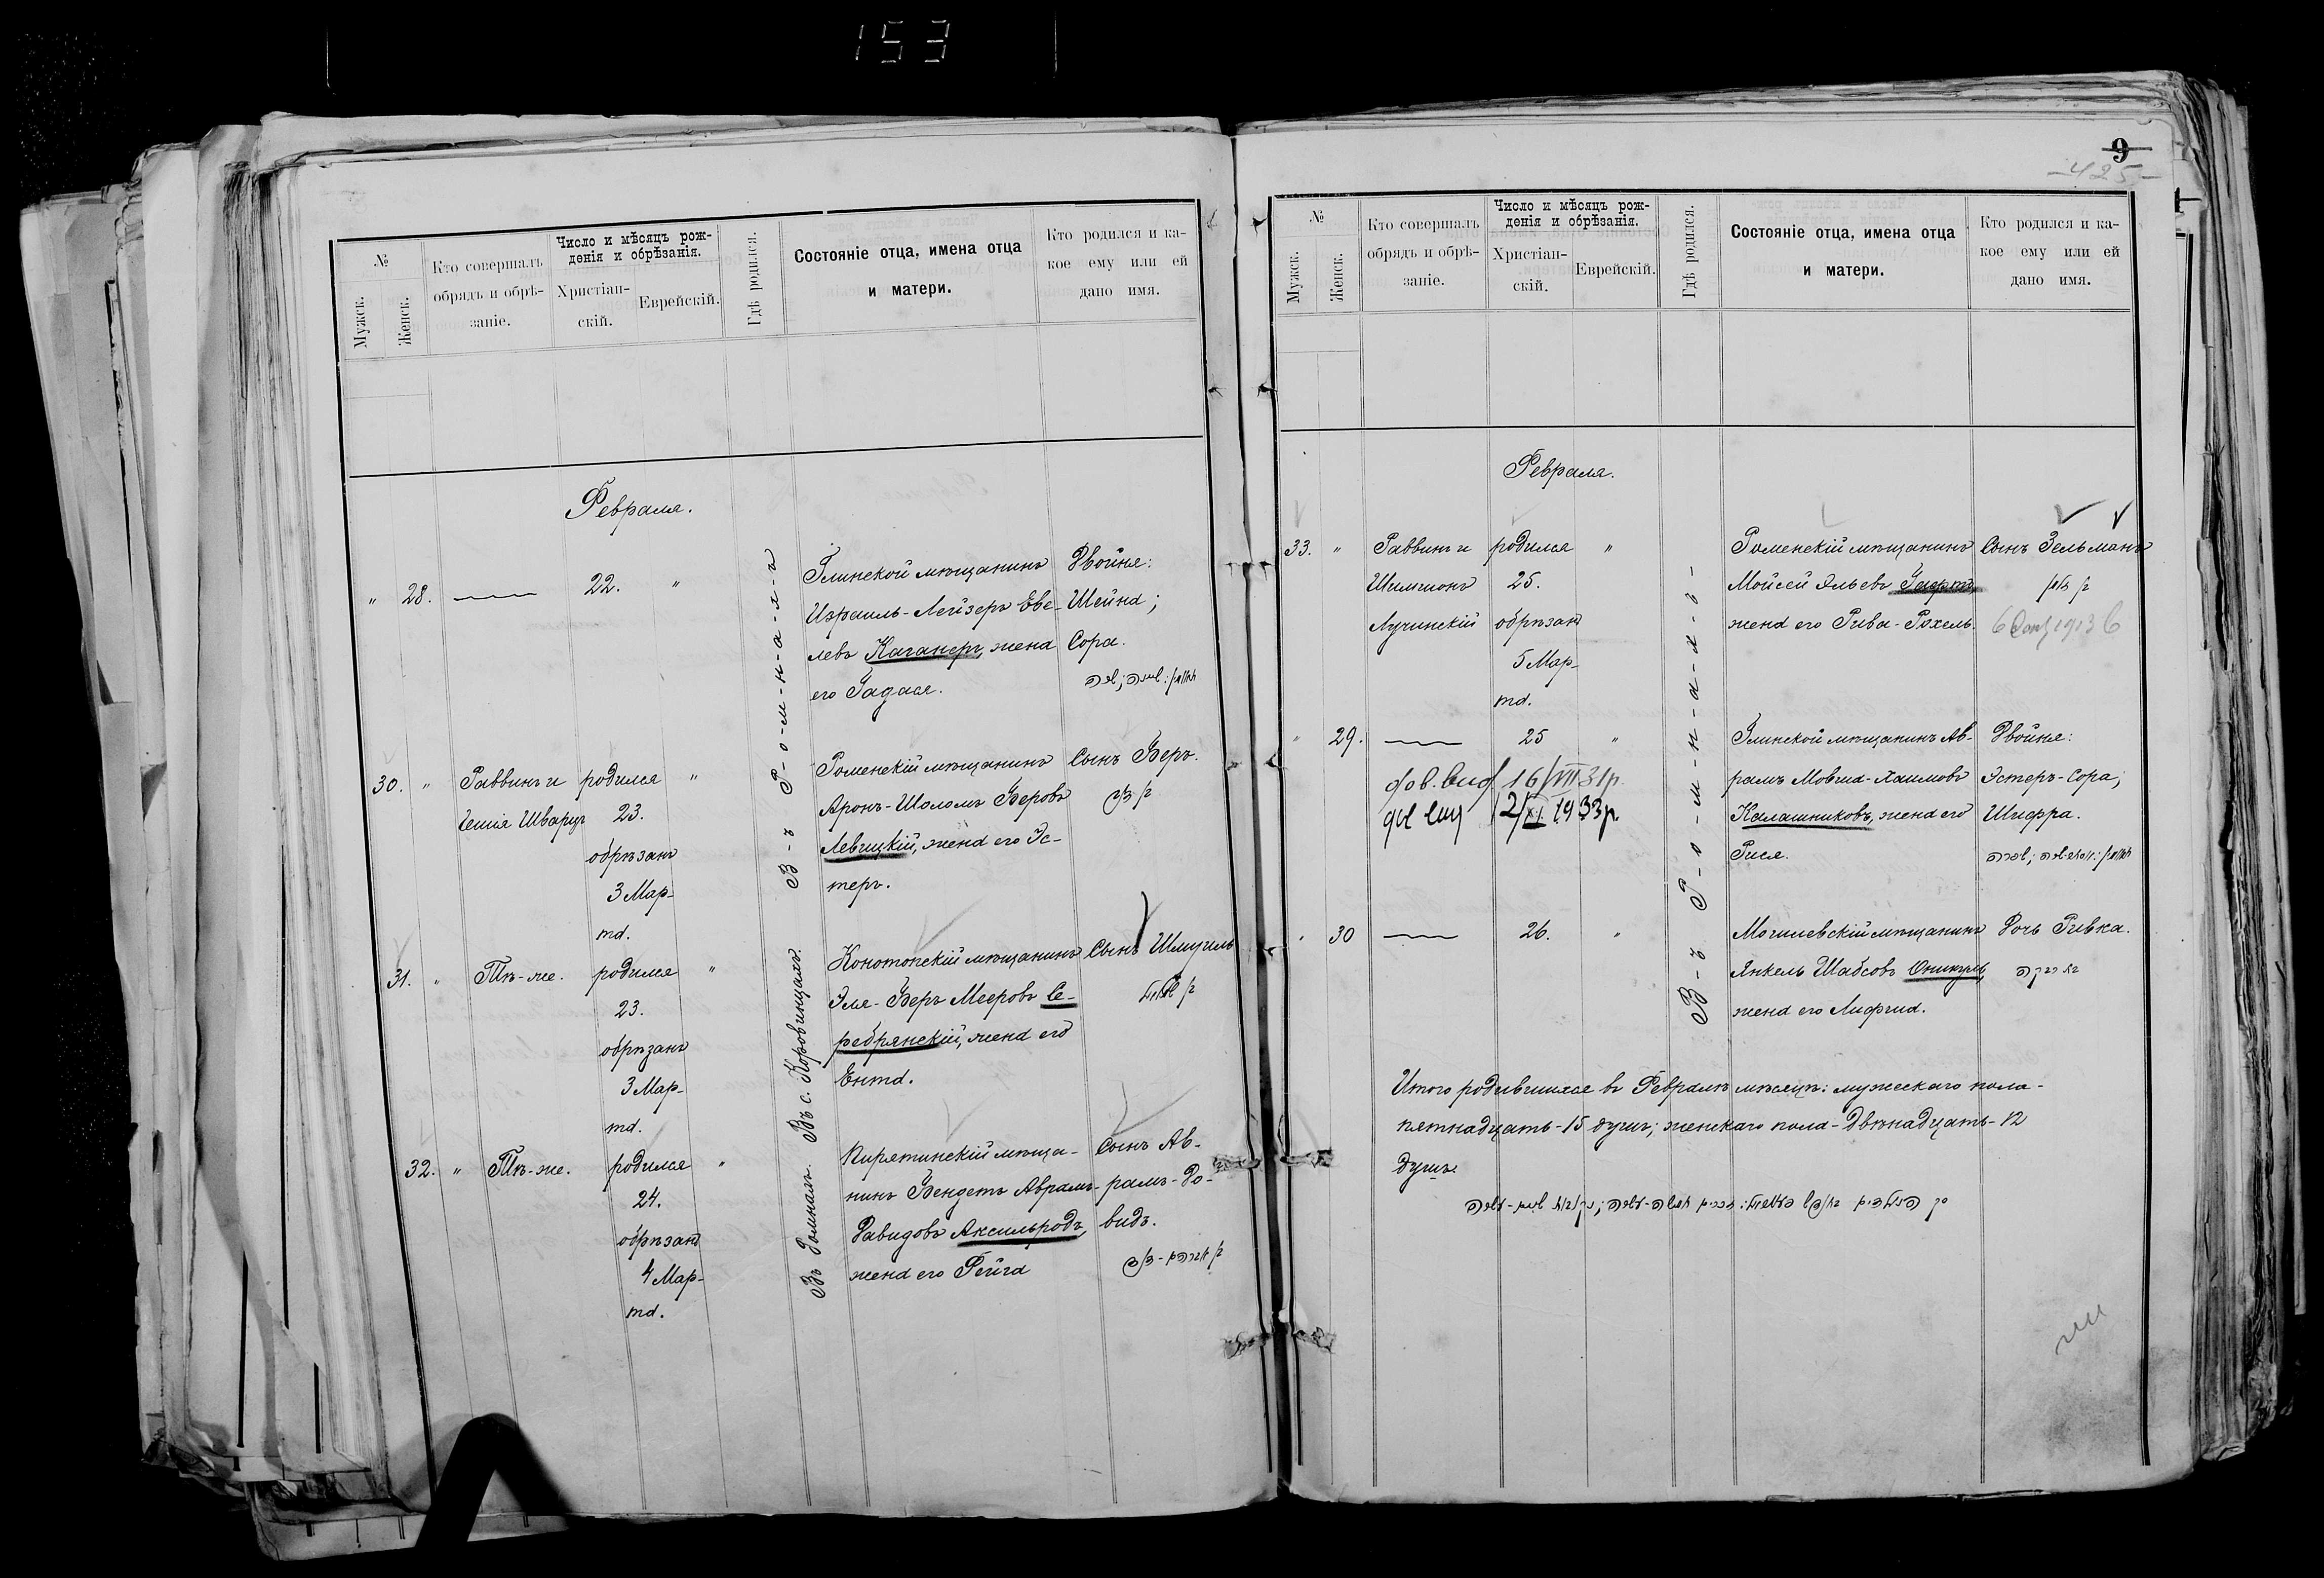 153
№
Мужск.
Женск.
Кто совершалъ
обрядъ и обрѣ-
заніе.
Число и мѣсяцъ рож-
денія и обрѣзанія.
Христіан-
скій.
Еврейскій.
Гдѣ родился.
Состояніе отца, имена отца
и матери.
Кто родился и ка-
кое ему или ей
дано имя.
Февраля.
" 28. 22. "
Глинской мѣщанинъ
Израиль-Лейзеръ Еве-
левъ Каганеръ, жена
его Гадася.
Двойня:
Шейна;
Сора.
30. "
Раввинъ и
Иешія Шварцъ
родился "
23.
обрѣзанъ
3 Мар-
та.
Въ Ромнахъ
Роменскій мѣщанинъ
Аронъ-Шоломъ Беровъ
Левицкій, жена его Эс-
теръ.
Сынъ Беръ.
31. "
Тѣ-же.
родился "
23.
обрѣзанъ
3 Мар-
та.
Въ с. Коровинцахъ.
Конотопскій мѣщанинъ
Эля-Беръ Мееровъ Се-
ребрянскій, жена его
Ента.
Сынъ Шмуель
32. "
Тѣ-же.
родился "
24.
обрѣзанъ
4 Мар-
та.
Въ Ромнахъ.
Пирятинскій мѣща-
нинъ Бендетъ Аврамъ-
Давидовъ Аксельродъ,
жена его Фейга
Сынъ Ав-
рамъ-До-
видъ.
9
-425-
№
Мужск.
Женск.
Кто совершалъ
обрядъ и обрѣ-
заніе.
Число и мѣсяцъ рож-
денія и обрѣзанія.
Христіан-
скій.
Еврейскій.
Гдѣ родился.
Состояніе отца, имена отца
и матери.
Кто родился и ка-
кое ему или ей
дано имя.
Февраля.
33. "
Раввинъ и
Шимшонъ
Лучинскій
родился "
25.
обрѣзанъ
5 Мар-
та.
В-ъ Р-о-м-н-а-х-ъ
Роменскій мѣщанинъ
Мойсей Эльевъ
жена его Рива-Рохель.
Сынъ Зельманъ
" 29. 25 "
Глинской мѣщанинъ Ав-
рамъ Мовша-Хаимовъ
Калашниковъ, жена его
Рися.
Двойня:
Эстеръ-Сора;
Шифра.
дов. вид 16/VIII 31р.
дов вид 12/XI 1933р.
" 30 26. "
Могилевскій мѣщанинъ
Янкель Шабсовъ
жена его Лифша.
Дочь Ривка.
Итого родившихся въ Февралѣ мѣсяцѣ: мужескаго пола-
пятнадцать-15 душъ; женскаго пола-Двѣнадцать-12
душъ.